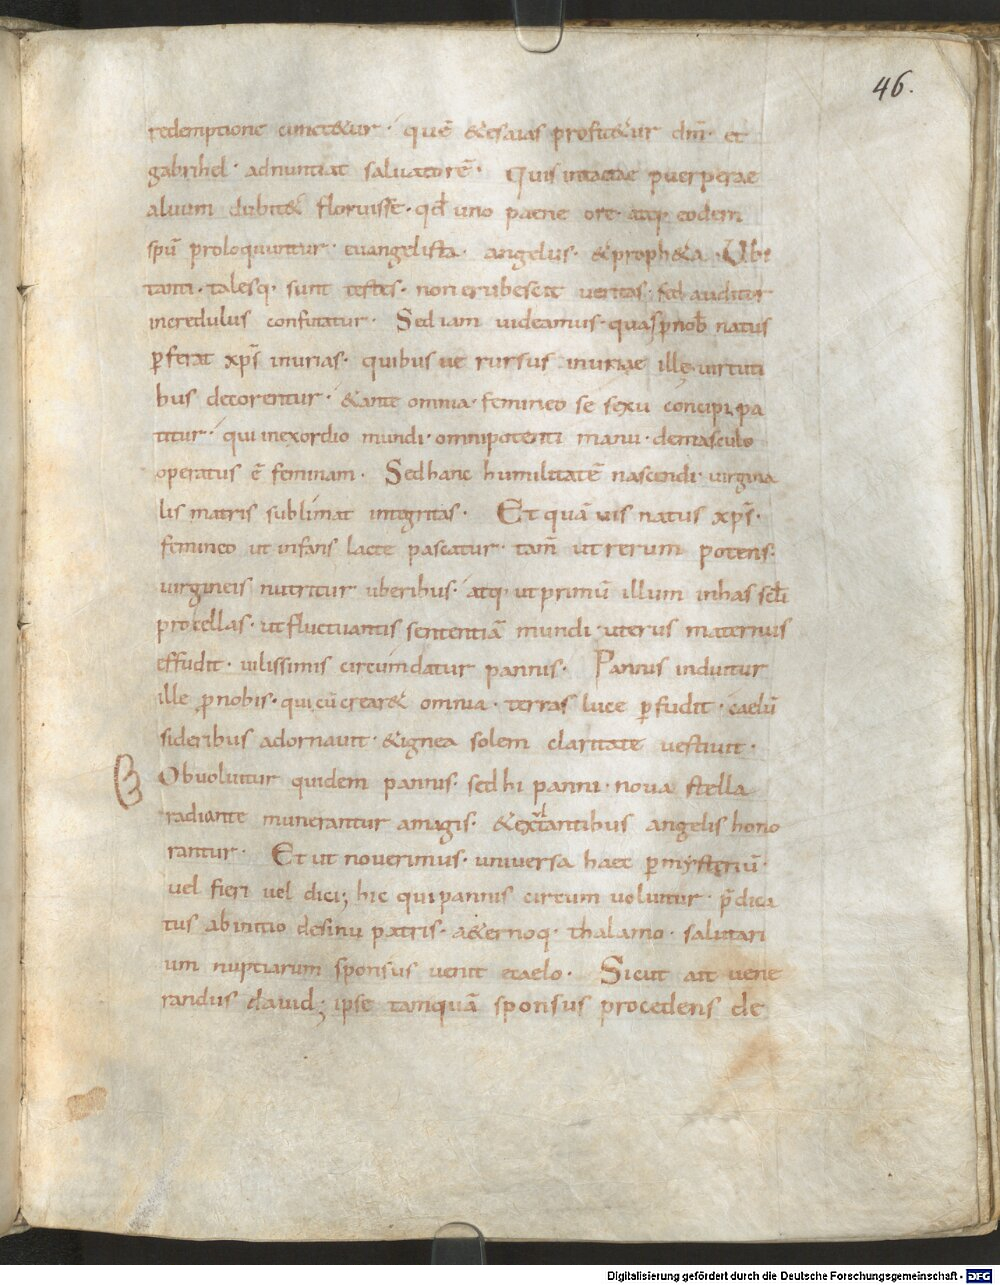 46.
redemptione cunct&ur · quē & esaias profit&ur dn̄m · et
gabrihel · adnuntiat saluatorē · Quis intactae puerperae
aluum dubit& floruisse · qd̄ uno paene ore · atq; eodem
spū proloquuntur · euangelista · angelus · & proph&a · Ubi
tanti · talesq; sunt testes · non erubescat ueritas · sed auditur
incredulus confutatur · Sed iam uideamus · quas ꝓ nob̄ natus
ꝑferat xp̄s iniurias · quibus ue rursus iniuriae ille uirtuti
bus decorentur · & ante omnia · femineo se sexu concipi pa
titur · qui in exordio mundi · omnipotenti manu · de masculo
operatus ē feminam · Sed hanc humilitatē nascendi · uirgina
lis matris sublimat integritas · Et quā uis natus xp̄s ·
femineo ut infans lacte pascatur · tam̄ ut rerum potens ·
uirgineis nutritur uberibus · atq; ut primū illum in has scl̄i
procellas · ut fluctuantis sententiā mundi · uterus maternus
effudit · uilissimis circumdatur pannis · Pannis induitur
ille ꝓ nobis · qui cū crear& omnia · terras luce ꝑfudit · caelū
sideribus adornauit · & ignea solem claritate uestiuit ·
Obuoluitur quidem pannis · sed hi panni · noua stella
radiante munerantur a magis · & exultantibus angelis hono
rantur · Et ut nouerimus · uniuersa haec ꝑ mysteriū ·
uel fieri uel dici; hic qui pannis circum uoluitur · p̄dica
tus ab initio de sinu patris · a&ernoq; thalamo · salutari
um nuptiarum sponsus uenit e caelo · Sicut ait uene
randus dauid; ipse tamquā sponsus procedens de
Digitalisierung gefördert durch die Deutsche Forschungsgemeinschaft - DFG